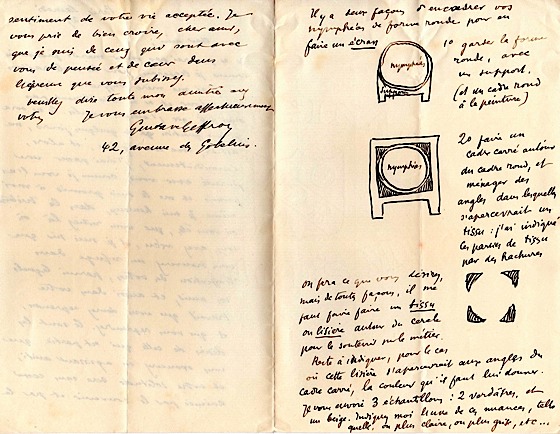 sentiment de votre vie acceptée. Je
vous prie de bien croire, cher ami,
que je suis de ceux qui sont avec
vous de pensée et de cœur dans
l'épreuve que vous subissez.
Veuillez dire toute mon amitié aux
vôtres. Je vous embrasse affectueusement
Gustave Geffroy
42, avenue des Gobelins.
Il y a deux façons d'encadrer vos
nymphéas de forme ronde pour en
faire un écran
1o garder la forme
ronde, avec
un support.
(et un cadre rond
à la peinture)
nymphéas
support
2o faire un
cadre carré autour
du cadre rond, et
ménager des
angles dans lesquels
s'apercevrait un
tissu : j'ai indiqué
les parties de tissu
par des hachures
nymphéas
on fera ce que vous désirez,
mais de toutes façons, il me
faut faire faire un tissu
ou lisière autour du cercle
pour le soutenir sur le métier.
Reste à indiquer, pour le cas
où cette lisière s'apercevrait aux angles du
cadre carré, la couleur qu'il faut lui donner.
Je vous envoie 3 échantillons : 2 verdâtres, et
un beige. Indiquez moi l'une de ces nuances, telle
quelle. ou plus claire, ou plus grise, etc...